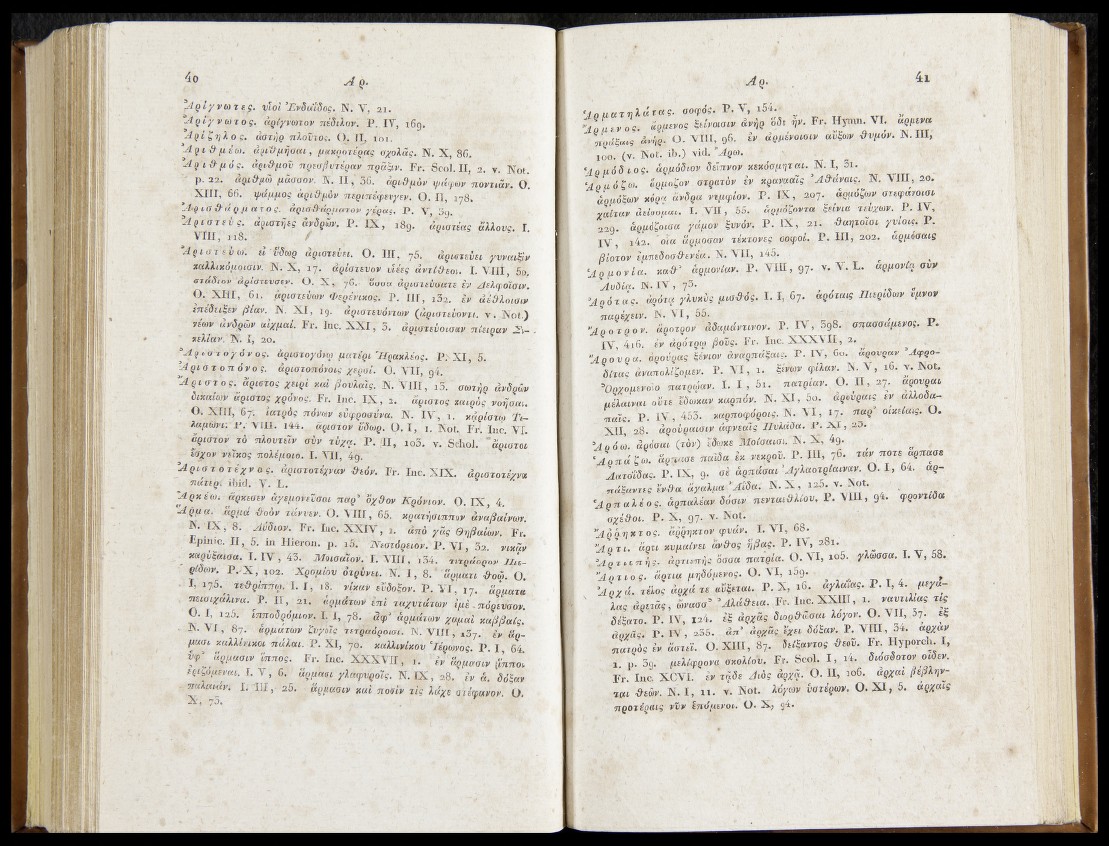 40
Αρ.
Ἀρίγνωτες. υἱοὶ Ἐνδαΐδος. N. V, 21.
Ἀρίγνωτος. ἀρίγνωτον πέδιλον. P. IV, 169.
Ἀρίζηλος. ἀστὴρ πλοῦτος. O. II, 101.
Ἀριθμέω. ἀριθμῆσαι, μακροτέρας σχολᾶς. N. X, 86.
Ἀριθμός. ἀριθμοῦ πρεσβυτέραν πρᾶξιν. Fr. Scol. II, 2. v. Not.
p. 22. ἀριθμῷ μᾶσσον. N. II, 36. ἀριθμὸν ψάφων ποντιᾶν. O.
XIII, 66. ψάμμος ἀριθμὸν περιπέφευγεν. O. II, 178.
Ἀρισθάρματος. ἀρισθάρματον γέρας. P. V, 39.
Ἀριστεύς. ἀριστῆες ἀνδρῶν. P. IX, 189. ἀριστέας ἄλλους. I.
VIII, 118.
Ἀριστεύω. εἰ ὕδωρ ἀριστεύει. O. III, 75. ἀριστεύει γυναιξὶν
καλλικόμοισιν. N. X, 17. ἀρίστευον υἱέες ἀντίθεοι. I. VIII, 50.
στάδιον ἀρίστευσεν. O. X, 76. ὅσσα ἀριστεύσατε ἐν Δελφοῖσιν.
O. XIII, 61. ἀριστεύων Φερένικος. P. III, 132. ἐν ἀέθλοισιν
ἐπέδειξεν βίαν. N. XI, 19. ἀριστευόντων (ἀριστεύοντι. v. Not.)
νέων ἀνδρῶν αἰχμαί. Fr. Inc. XXI, 3. ἀριστεύοισαν πίειραν Σι-
κελίαν. N. I, 20.
Ἀριστογόνος. ἀριστογόνῳ ματέρι Ἡρακλέος. P. XI, 5.
Ἀριστοπόνος. ἀριστοπόνοις χερσί. O. VII, 94.
Ἄριστος. ἄριστος χειρὶ καὶ βουλαῖς. N. VIII, 13. σωτὴρ ἀνδρῶν
δικαίων ἄριστος χρόνος. Fr. Inc. IX, 2. ἄριστος καιρὸς νοῆσαι.
O. XIII, 67. ἰατρὸς πόνων εὐφροσύνα. N. IV, 1. κἀρίστῳ Τε-
λαμῶνι. P. VIII. 144. ἄριστον ὕδωρ. O. I, 1. Not. Fr. Inc. VI.
ἄριστον τὸ πλουτεῖν σὺν τύχᾳ. P. II, 103. v. Schol. ἄριστοι
ἔσχον νεῖκος πολέμοιο. I. VII, 49.
Ἀριστοτέχνος. ἀριστοτέχναν θεόν. Fr. Inc. XIX. ἀριστοτέχνα
πάτερ. ibid. V. L.
Ἀρκέω. ἄρκεσεν ἀγεμονεῦσαι παρ' ὄχθον Κρόνιον. O. IX, 4.
Ἅρμα. ἅρμά θοὸν τάνυεν. O. VIII, 65. κρατήσιππον ἀναβαίνων.
N. IX, 8. Λύδιον. Fr. Inc. XXIV, 2. ἀπὸ γᾶς Θηβαίων. Fr.
Epinic. II, 5. in Hieron. p. 15. Νεστόρειον. P. VI, 32. νικᾶν
καρύξαισα. I. IV, 43. Μοισαῖον. I. VIII, 134. τετράορον Πιε-
ρίδων. P. X, 102. Χρομίου ὀτρύνει. N. I, 8. ἅρματι θοῷ. O.
I, 175. τεθρίππῳ. I. I, 18. νίκαν εὔδοξον. P. VI, 17. ἅρματα
πεισιχάλινα. P. II, 21. ἁρμάτων ἐπὶ ταχυτάτων ἐμὲ πόρευσον.
O. I, 125. ἱπποδρόμιον. I. I, 78. ἀφ' ἁρμάτων χαμαὶ καββαίς.
N. VI, 87. ἁρμάτων ζυγοῖς τετραόροισι. N. VIII, 137. ἐν ἅρ-
μασι καλλίνικοι πάλαι. P. XI, 70. καλλινίκου Ἱέρωνος. P. I, 64.
ὑφ' ἅρμασιν ἵππος. Fr. Inc. XXXVII, 1. ἐν ἅρμασιν ἵπποι
ἐριζόμεναι. I. V, 6. ἅρμασι γλαφυροῖς. N. IX, 28. ἐν ἁ. δόξαν
παλαιάν. I. III, 25. ἅρμασιν καὶ ποσίν τις λάχε στέφανον. O.
X, 75.
Αρ.
41
Ἁρματηλάτας. σοφός. P. V, 154.
Ἄρμενος. ἄρμενος ξείνοισιν ἀνὴρ ὅδε ἦν. Fr. Hymn. VI. ἄρμενα
πράξαις ἀνήρ. O. VIII, 96. ἐν ἀρμένοισιν αὔξων θυμόν. N. III,
100. (v. Not. ib.) vid. Ἄρω.
Ἁρμόδιος. ἁρμόδιον δεῖπνον κεκόσμηται. N. I, 31.
Ἁρμόζω. ἅρμοζον στρατὸν ἐν κρανααῖς Ἀθάναις. N. VIII, 20.
ἁρμόζων κόρᾳ ἄνδρα νυμφίον. P. IX, 207. ἁρμόζων στεφάνοισι
χαίταν ἀείσομαι. I. VII, 55. ἁρμόζοντα ξείνια τεύχων. P. IV,
229. ἁρμόζοισα γάμον ξυνόν. P. IX, 21. θαητοῖσι γυίοις. P.
IV, 142. οἷα ἅρμοσον τέκτονες σοφοί. P. III, 202. ἁρμόσαις
βίοτον ἐμπεδοσθενέα. N. VII, 145.
Ἁρμονία. καθ' ἁρμονίαν. P. VIII, 97. v. V. L. ἁρμονίᾳ σὺν
Λυδίᾳ. N. IV, 73.
Ἀρότας. ἀρότᾳ γλυκὺς μισθός. I. I, 67. ἀρόταις Πιερίδων ὕμνον
παρέχειν. N. VI, 55.
Ἄροτρον. ἄροτρον ἀδαμάντινον. P. IV, 398. σπασσάμενος. P.
IV, 416. ἐν ἀρότρῳ βοῦς. Fr. Inc. XXXVII, 2.
Ἄρουρα. ἀρούρας ξένιον ἀναρπάξαις. P. IV, 60. ἄρουραν Ἀφρο-
δίτας ἀναπολίζομεν. P. VI, 1. ξένων φίλαν. N. V, 16. v. Not.
Ὀρχομενοῖο πατρῴαν. I. I, 51. πατρίαν. O. II, 27. ἄρουραι
μέλαιναι οὔτε ἔδωκαν καρπόν. N. XI, 50. ἀρούραις ἐν ἀλλοδα-
παῖς. P. IV, 453. καρποφόροις. N. VI, 17. παρ' οἰκείαις. O.
XII, 28. ἀρούραισιν ἀφνεαῖς Πυλάδα. P. XI, 23.
Ἀρόω. ἀρόσαι (τὸν) ἔδωκε Μοίσαισι. N. X, 49.
Ἁρπάζω. ἅρπασε παῖδα ἐκ νεκροῦ. P. III, 76. τάν ποτε ἅρπασε
Λατοΐδας. P. IX, 9. σὲ ἁρπάσαι Ἀγλαοτρίαιναν. O. I, 64. ἁρ-
πάξαντες ἔνθα ἄγαλμα Ἀΐδα. N. X, 125. v. Not.
Ἁρπαλέος. ἁρπαλέαν δόσιν πενταεθλίου. P. VIII, 94. φροντίδα
σχέθοι. P. X, 97. v. Not.
Ἄῤῥηκτος. ἄῤῥηκτον φυάν. I. VI, 68.
Ἄρτι. ἄρτι κυμαίνει ἄνθος ἥβας. P. IV, 281.
Ἀρτιεπής. ἀρτιεπὴς ὄσσα πατρία. O. VI, 105. γλῶσσα. I. V, 58.
Ἄρτιος. ἄρτια μηδόμενος. O. VI, 159.
Ἀρχά. τέλος ἀρχά τε αὔξεται. P. X, 16. ἀγλαΐας. P. I, 4. μεγά-
λας ἀρετᾶς, ὤνασσ' Ἀλάθεια. Fr. Inc. XXIII, 1. ναυτιλίας τίς
δέξατο. P. IV, 124. ἐξ ἀρχᾶς διορθῶσαι λόγον. O. VII, 37. ἐξ
ἀρχᾶς. P. IV, 235. ἀπ' ἀρχᾶς ἔχει δόξαν. P. VIII, 34. ἀρχὰν
πατρὸς ἐν ἄστεϊ. O. XIII, 87. δείξαντος θεοῦ. Fr. Hyporch. I,
1. p. 39. μελίφρονα σκολίου. Fr. Scol. I, 14. διόσδοτον οἶδεν.
Fr. Inc. XCVI. ἐν τᾷδε Διὸς ἀρχᾷ. O. II, 106. ἀρχαὶ βέβλην-
ται θεῶν. N. I, 11. v. Not. λόγων ὑστέρων. O. XI, 5. ἀρχαῖς
προτέραις νῦν ἑπόμενοι. O. X, 94.